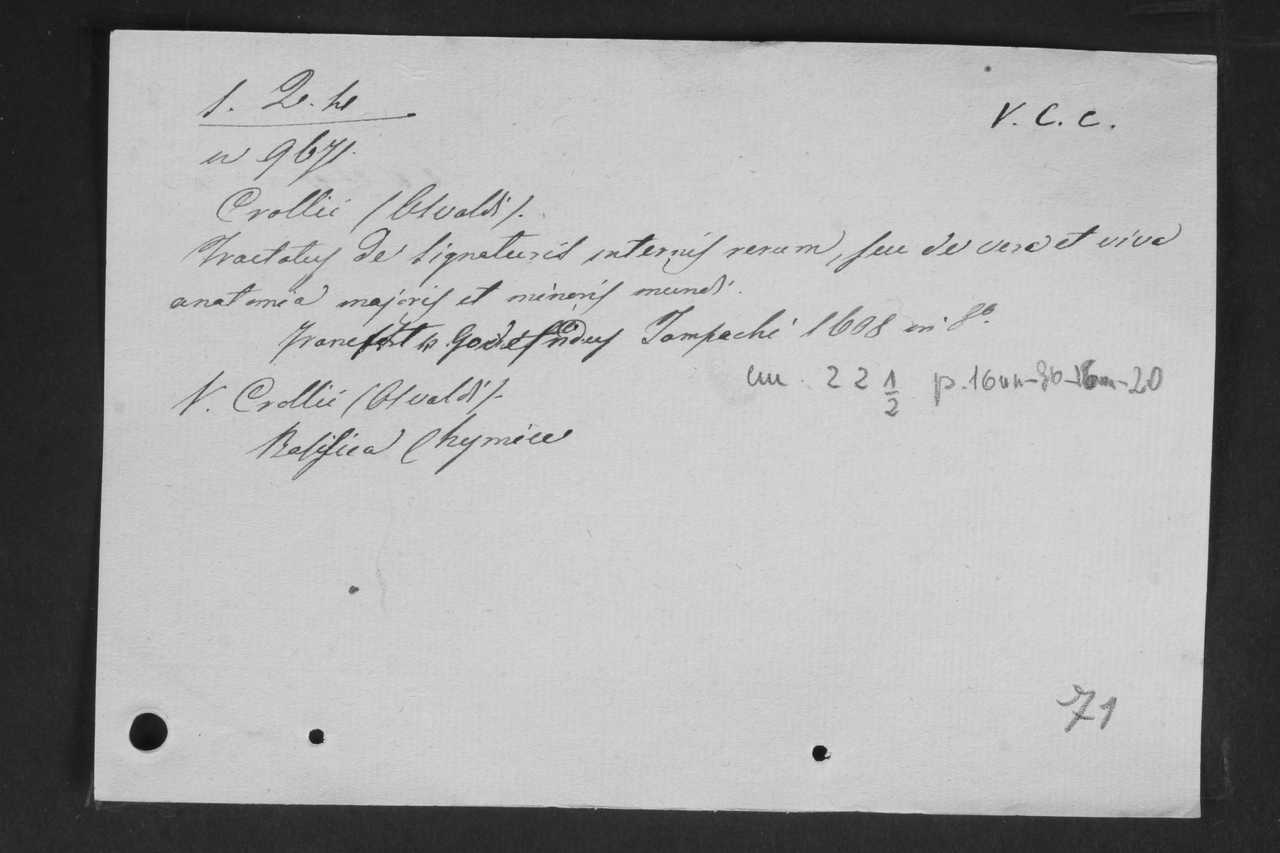 V. C. C.
n 9671.
Crollii (Osvaldi).
Tractatus de signaturis internis rerum, seu de vera et viva
anatomia majoris et minoris mundi.
Francfort Tampachi 1608 in 8º.
cm. 22 1/2 p. 16
V. Crollii (Osvaldi).
Basilica Chymica
71